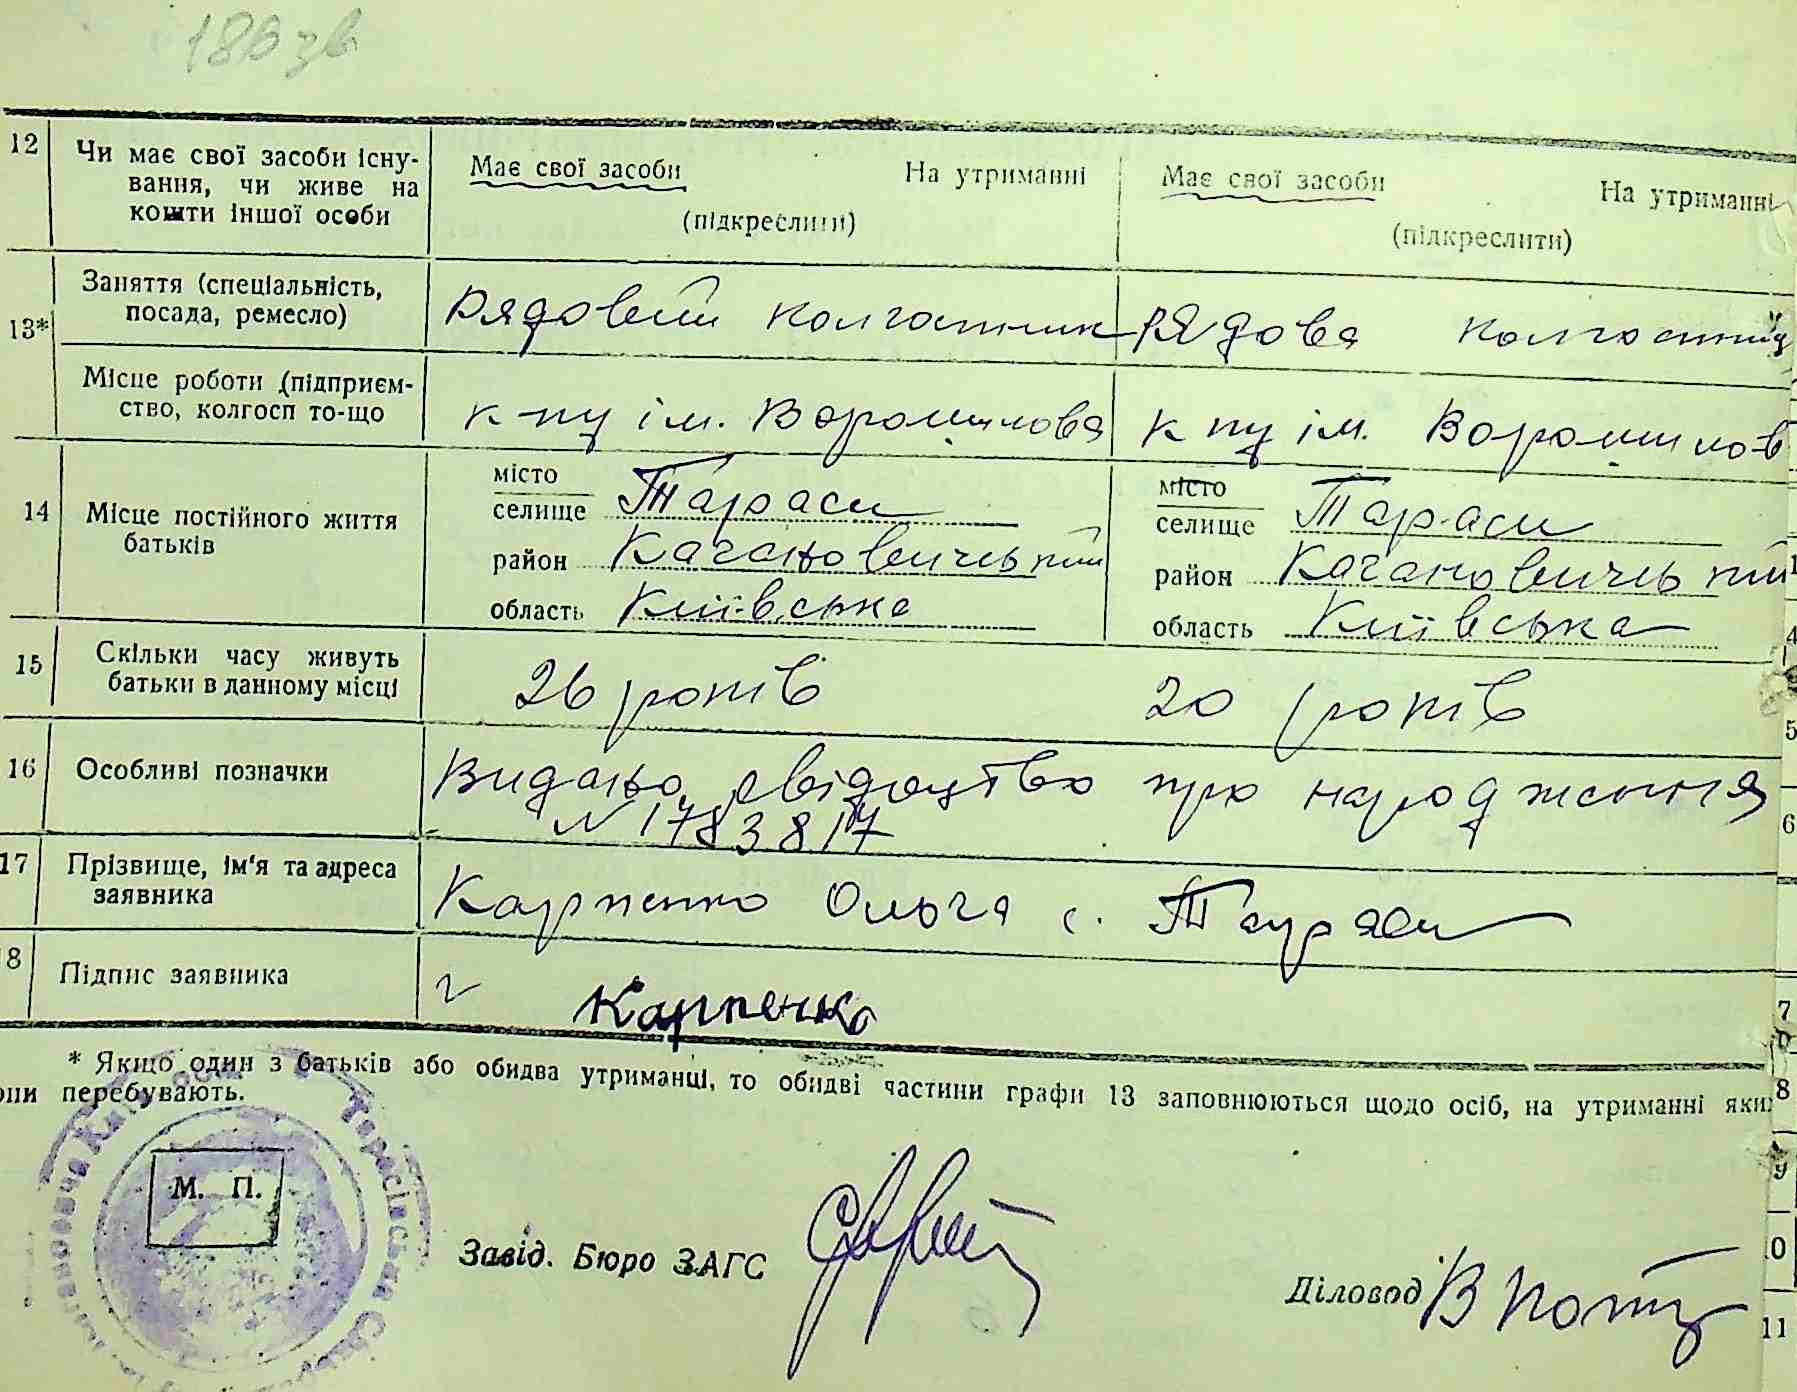 186 зв
12 Чи має свої засоби існу-
вання, чи живе на
кошти іншої особи
Має свої засоби На утриманні
(підкреслити)
Має свої засоби На утриманні
(підкреслити)
13* Заняття (спеціальність,
посада, ремесло)
Рядовий колгоспник
Рядова колгоспниц
Місце роботи (підприєм-
ство, колгосп то-що
к-пу ім. Ворошилова
к пу ім. Ворошилов
14 Місце постійного життя
батьків
місто
селище Тараси
район Кагановичський
область Київська
місто
селище Тараси
район Кагановичський
область Київська
15 Скільки часу живуть
батьки в данному місці
26 років
20 років
16 Особливі позначки
Видано свідоцтво про народження
N 1783817
17 Прізвище, ім'я та адреса
заявника
Карпенко Ольга с. Тараси
8 Підпис заявника
Карпенко
* Якщо один з батьків або обидва утриманці, то обидві частини графи 13 заповнюються щодо осіб, на утриманні яких
они перебувають.
М. П.
Тарасівська
Завід. Бюро ЗАГС
Діловод
1
4
5
6
7
8
9
10
11